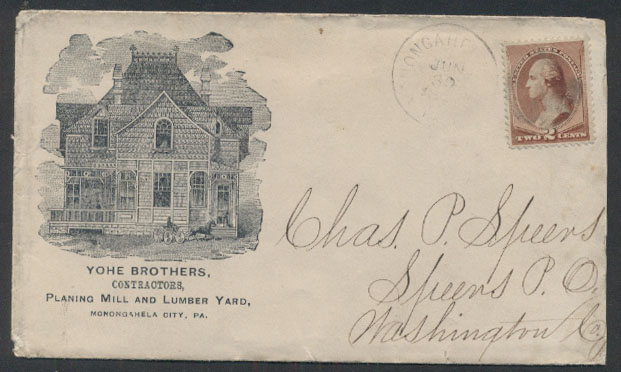 YOHE BROTHERS,
CONTRACTORS,
PLANING MILL AND LUMBER YARD,
MONONGAHELA CITY, PA.
JUN
30
TWO 2 CENTS
Chas. P. Speers
Speers P. O.
Washington Co.